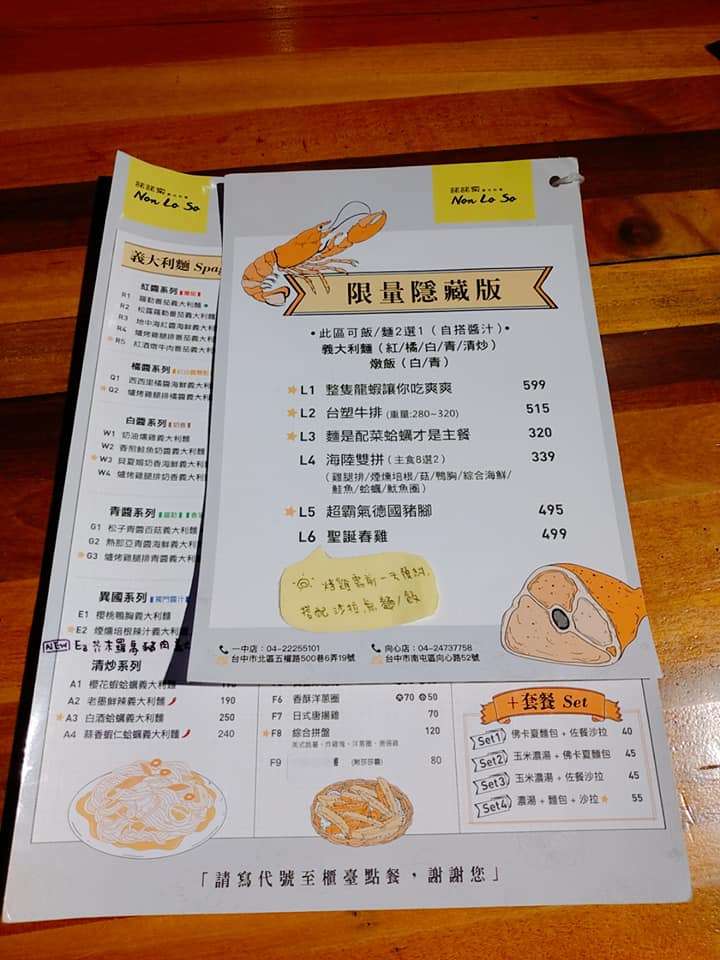 Non Lo So
義大利麵 Spag
紅醬系列
R1 羅勒番茄義大利麵
R2 松露羅勒番茄義大利麵
R3 地中海紅醬海鮮義大利
R4 爐烤雞腿排番茄義大利
R5 紅酒燉牛肉番茄義大利
橘醬系列
Q1 西西里橘醬海鮮義大利
Q2 爐烤雞腿排橘醬義大利
白醬系列 奶香
W1 奶油燻雞義大利麵
W2 香煎鮭魚奶醬義大利
W3 貝夏媚奶香海鮮義大利
W4 爐烤雞腿排奶香義大利
青醬系列
G1 松子青醬百菇義大利麵
G2 熱那亞青醬海鮮義大利
G3 爐烤雞腿排青醬義大利
異國系列 獨門醬汁
E1 櫻桃鴨胸義大利麵
E2 煙燻培根辣汁義大利麵
NEW E3
清炒系列
A1 櫻花蝦蛤蠣義大利麵 190
A2 老墨鮮辣義大利麵 190
A3 白酒蛤蠣義大利麵 250
A4 蒜香蝦仁蛤蠣義大利麵 240
Non Lo So
限量隱藏版
•此區可飯/麵2選1(自搭醬汁)•
義大利麵(紅/橘/白/青/清炒)
燉飯(白/青)
L1 整隻龍蝦讓你吃爽爽 599
L2 台塑牛排(重量:280~320) 515
L3 麵是配菜蛤蠣才是主餐 320
L4 海陸雙拼(主食8選2) 339
(雞腿排/煙燻培根/菇/鴨胸/綜合海鮮/
鮭魚/蛤蠣/魷魚圈)
L5 超霸氣德國豬腳 495
L6 聖誕春雞 499
烤雞需前一天預訂,
搭配沙拉無麵/飯
一中店:04-22255101
台中市北區五權路500巷6弄19號
向心店:04-24737758
台中市南屯區向心路52號
F6 香酥洋蔥圈 70 50
F7 日式唐揚雞 70
F8 綜合拼盤 120
美式脆薯、炸雞塊、洋蔥圈、唐揚雞
F9 (附莎莎醬) 80
+套餐 Set
Set1 佛卡夏麵包+佐餐沙拉 40
Set2 玉米濃湯+佛卡夏麵包 45
Set3 玉米濃湯+佐餐沙拉 45
Set4 濃湯+麵包+沙拉 55
「請寫代號至櫃臺點餐,謝謝您」